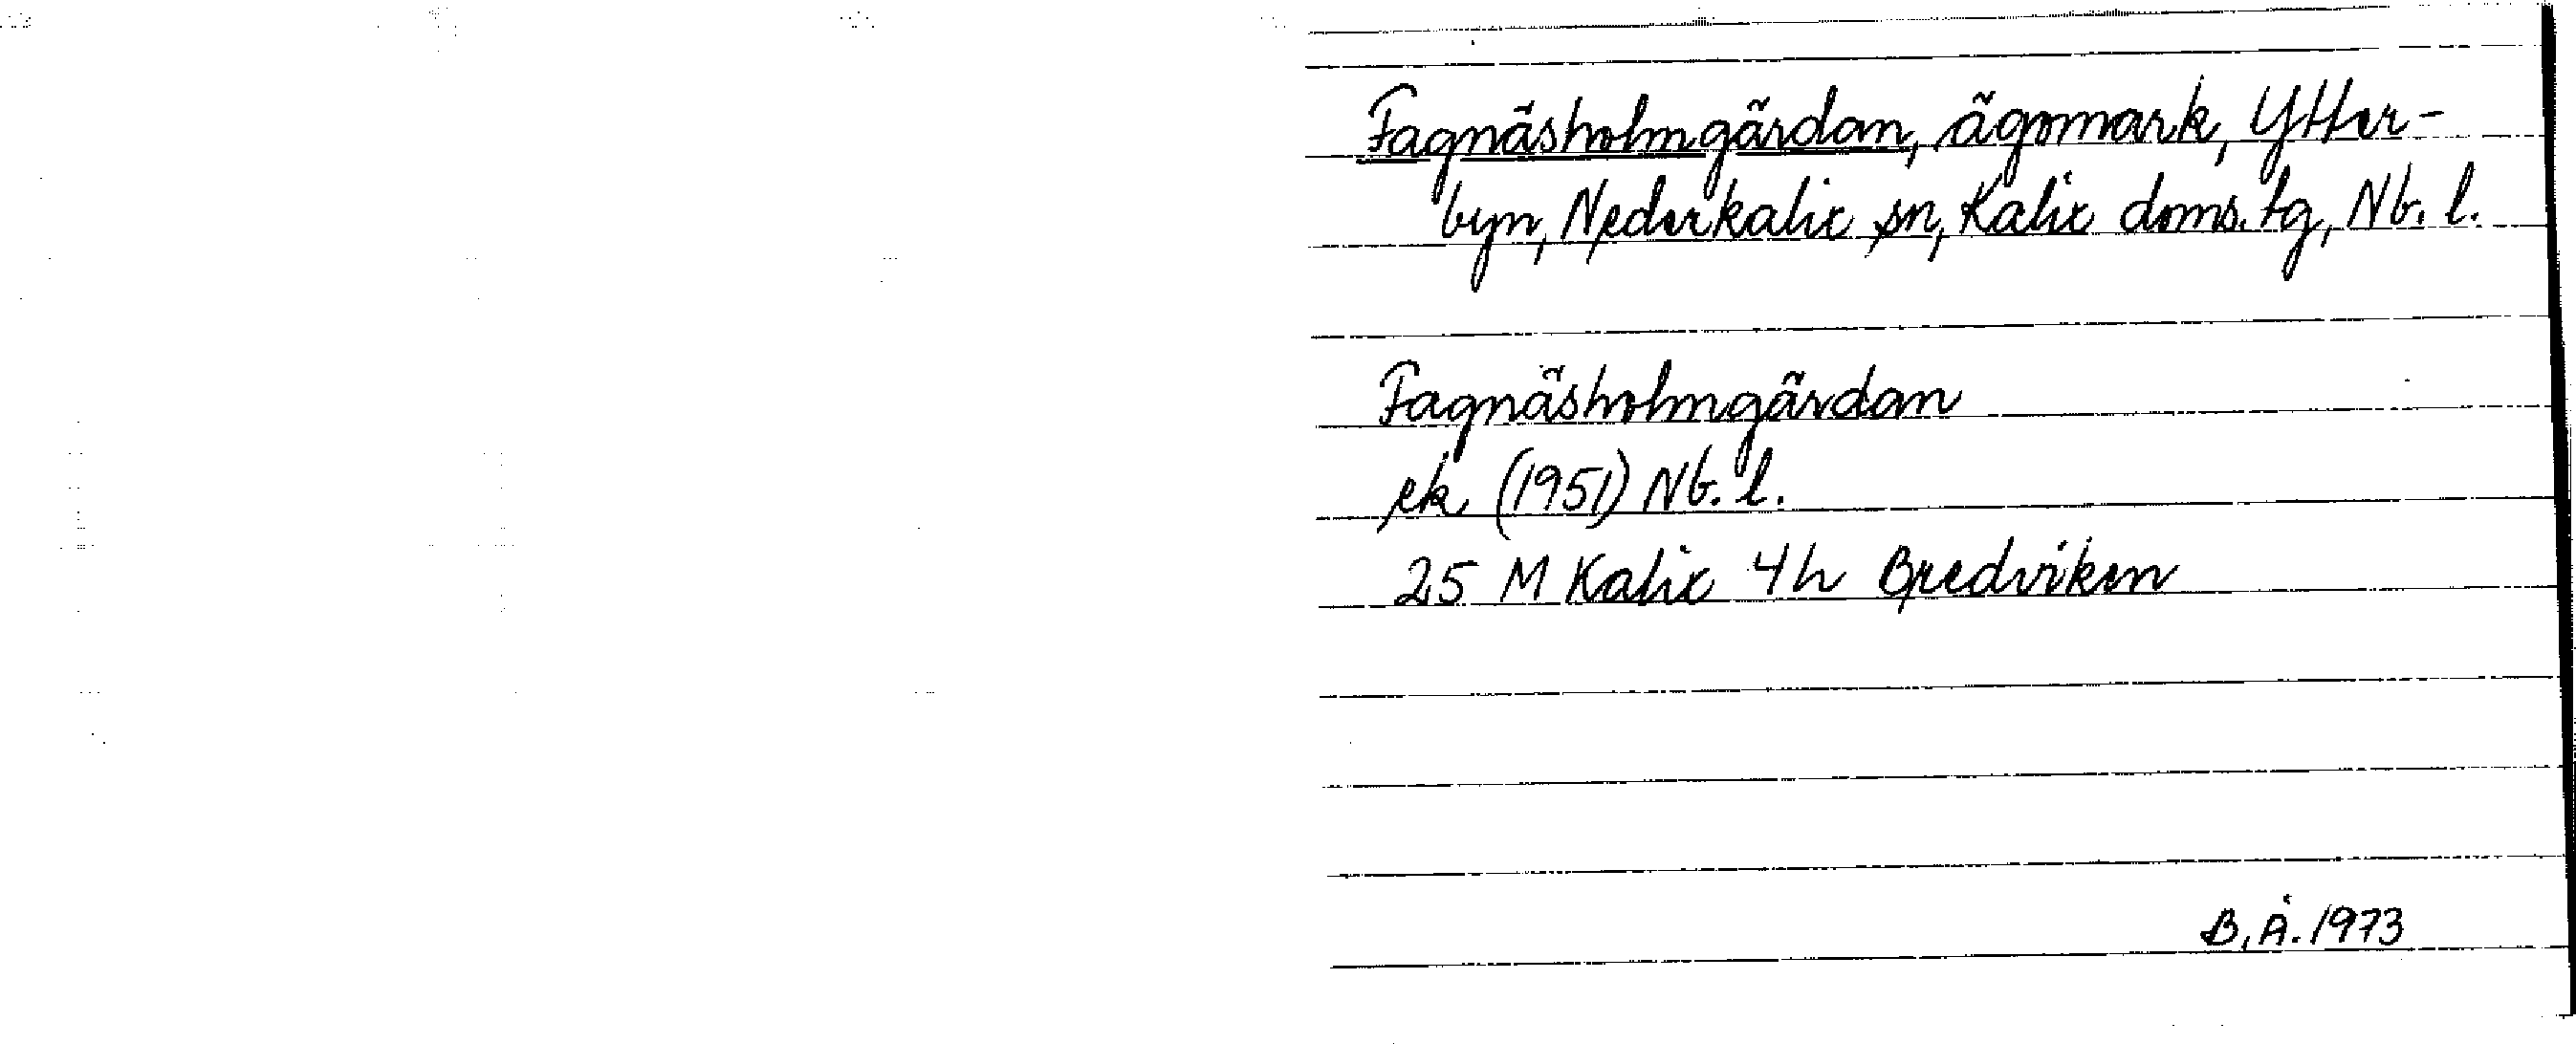 Fagnäsholmgärdan, ägomark, Ytter-
byn, Nederkalix sn, Kalix doms. tg, Nb. l.
Fagnäsholmgärdan
ek (1951) Nb. l.
25 M Kalix 4h Bredviken
B. Å. 1973